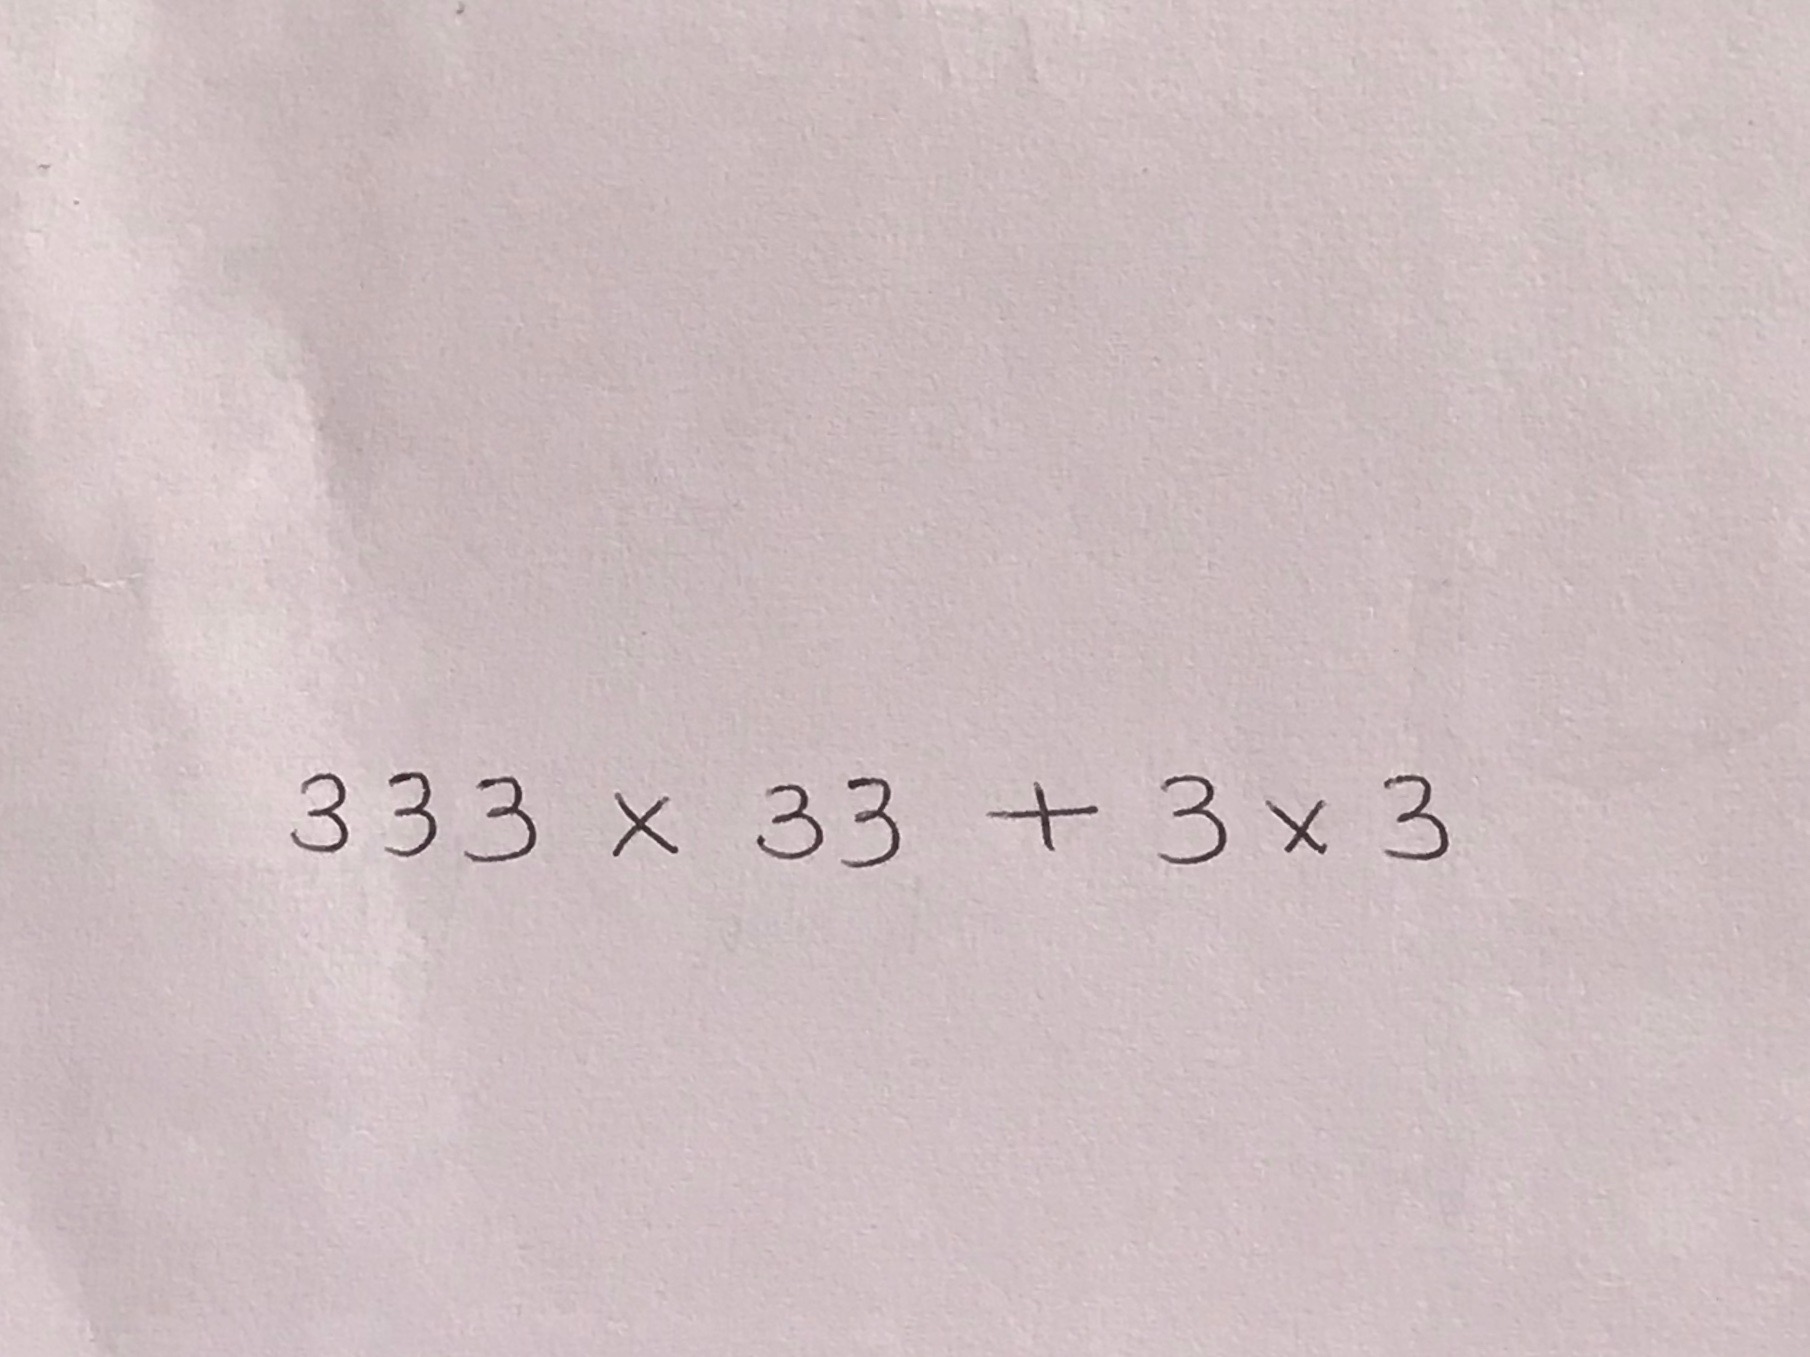 333 × 33 + 3 × 3